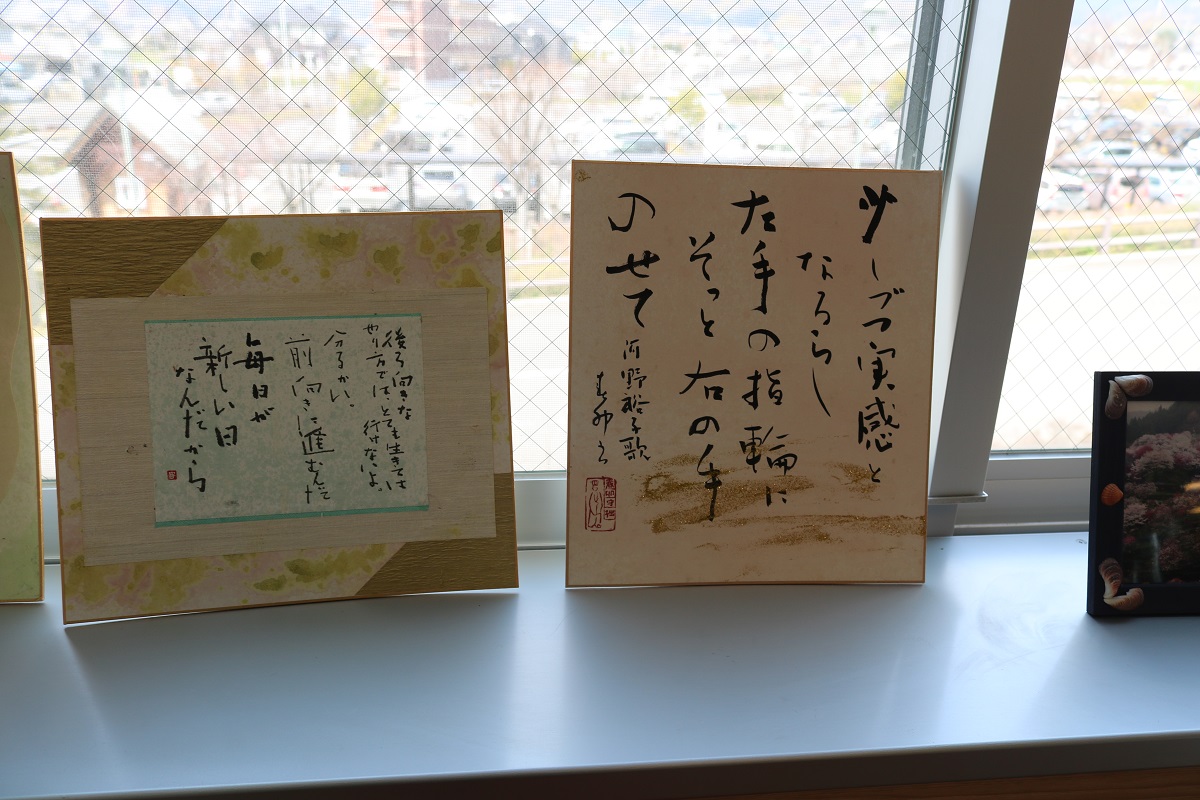 後ろ向きな
やり方では、とても生きては
行けないよ。
分るかい、
前向きに進むんだ
毎日が
新しい日
なんだから
少しづつ実感と
なるらし
左手の指輪に
そっと右の手
のせて
河野裕子歌